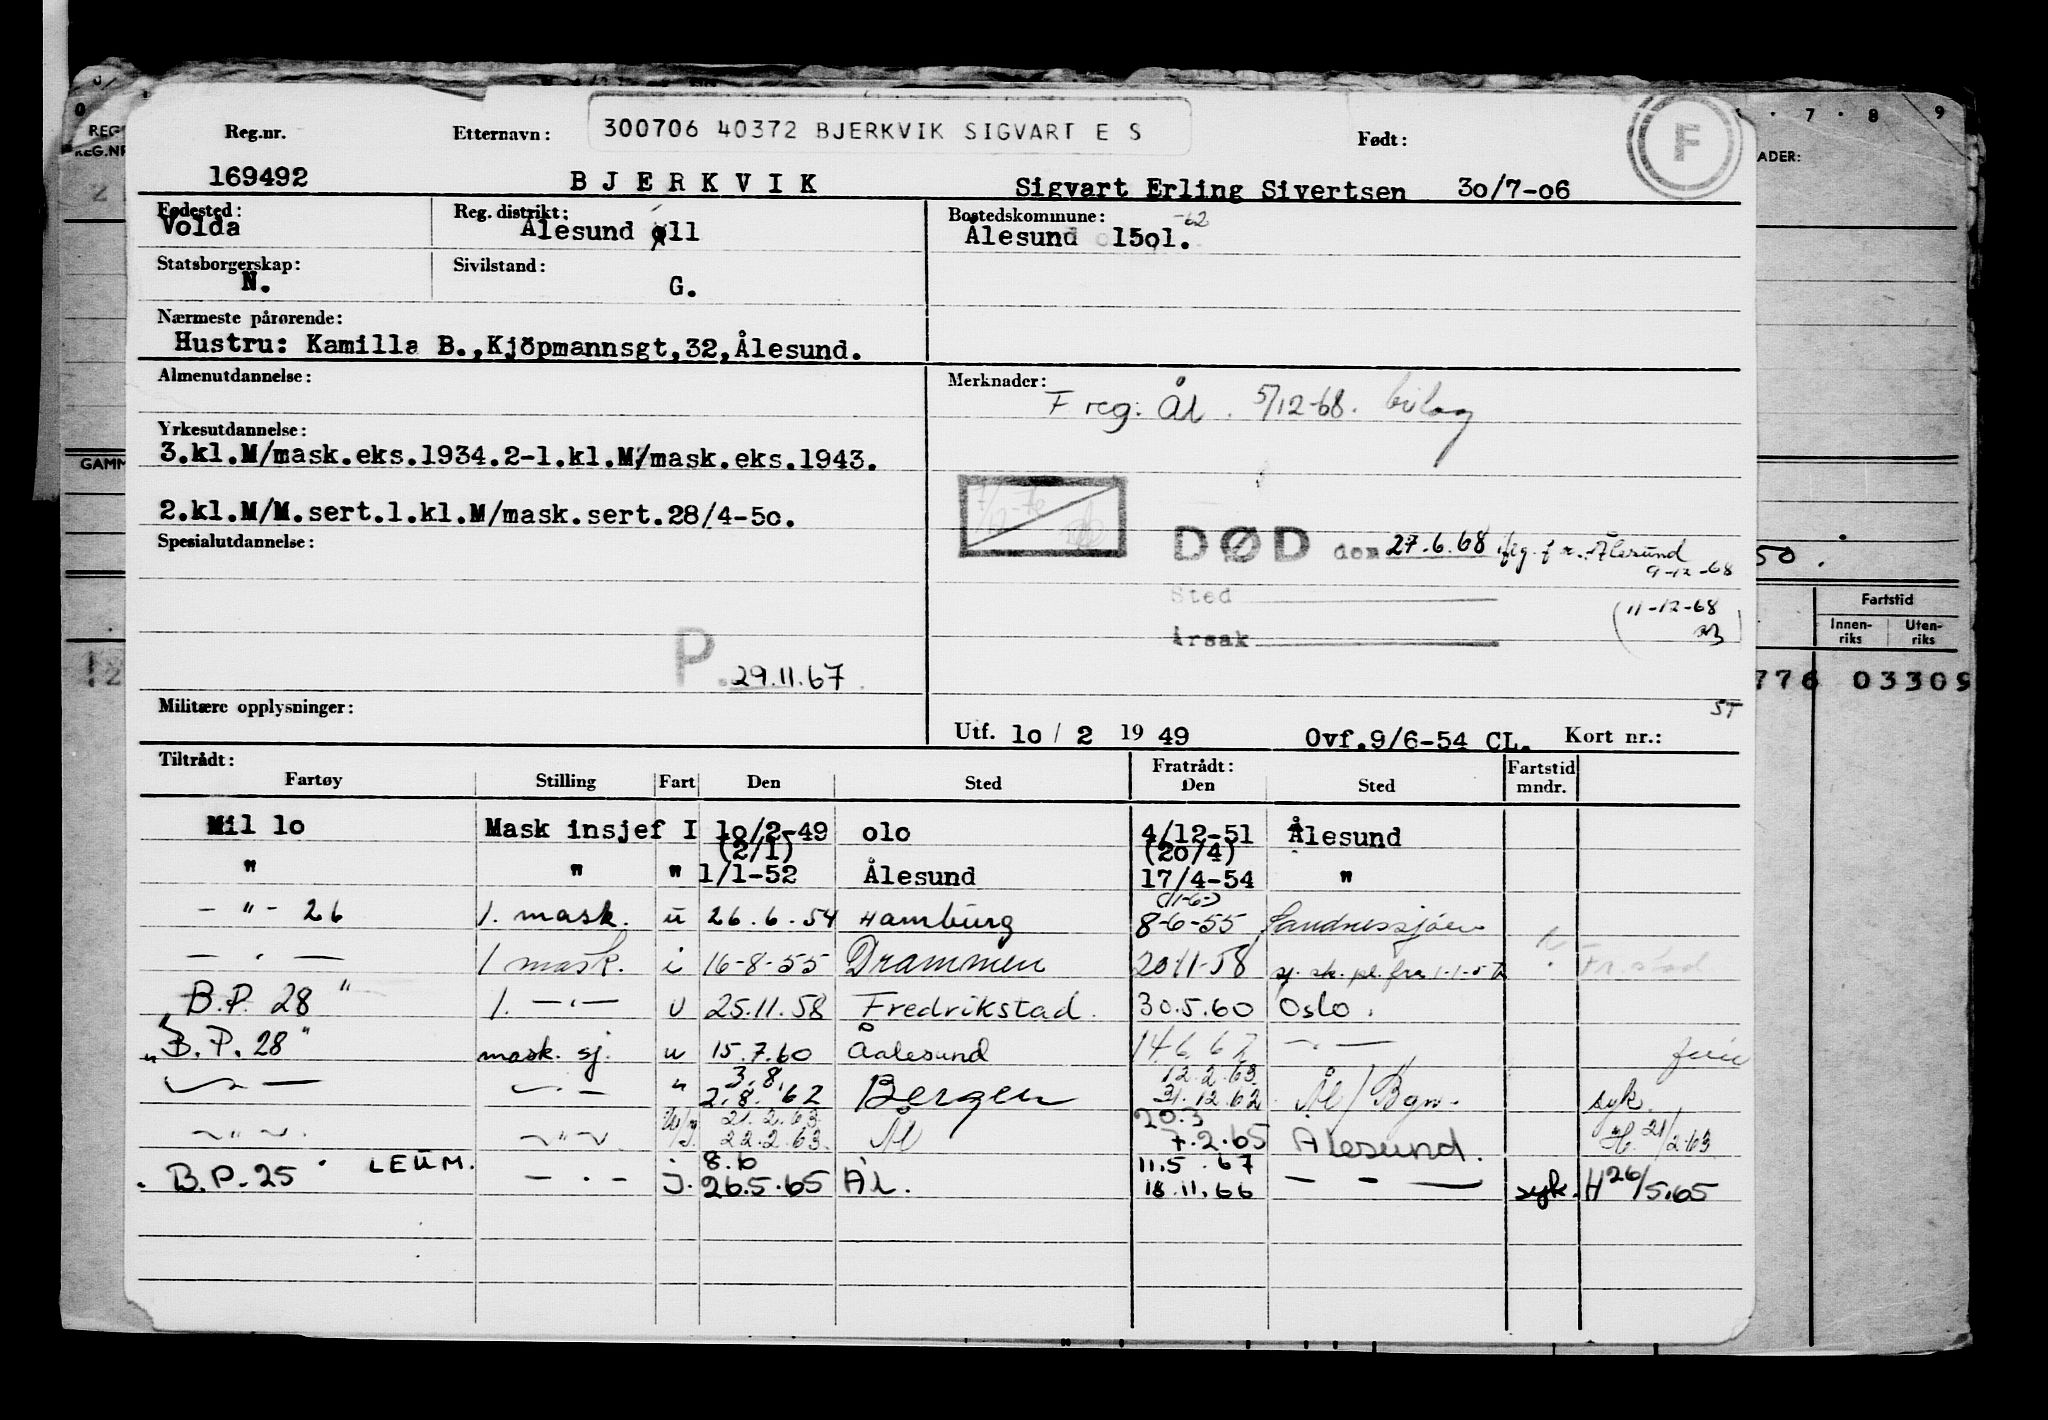 Reg.nr. Etternavn: 300706 40372 BJERKVIK SIGVART E S Født: F
169492 BJERKVIK Sigvart Erling Sivertsen 3o/7-o6
Fødested: Reg. distrikt: Bostedskommune: -62
Volda Ålesund o11 Ålesund 15o1.
Statsborgerskap: Sivilstand:
N. G.
Nærmeste pårørende:
Hustru: Kamilla B.,Kjöpmannsgt,32,Ålesund.
Almenutdannelse: Merknader:
F reg. Ål. 5/12-68. bilag
Yrkesutdannelse:
3.kl.M/mask.eks.1934.2-1.kl.M/mask.eks.1943.
2.kl.M/M.sert.1.kl.M/mask.sert.28/4-5o.
Spesialutdannelse:
DØD den 27.6.68 iflg. f r. Ålesund
9-12-68
Sted
(11-12-68
Årsak
P. 29.11.67
Militære opplysninger: ST
Utf. 1o / 2 19 49 Ovf.9/6-54 CL. Kort nr.:
Tiltrådt: Fratrådt: Fartstid
Fartøy Stilling Fart Den Sted Den Sted mndr.
Mil 1o Mask insjef I 1o/2-49 o1o 4/12-51 Ålesund
(2/1) (20/4)
" " " 1/1-52 Ålesund 17/4-54 "
(11-6-)
- " - 26 1. mask. u 26.6.54 Hamburg 8-6-55 Sandnessjøen
— " — 1 mask. i 16-8-55 Drammen 20/11-58 sj. sk. pl. fra 1-1- Fr.stad
"B.P. 28" 1. — " — u 25.11.58 Fredrikstad. 30.5.60 Oslo.
"B.P. 28" mask. sj. u 15.7.60 Aalesund 14.6.62 — " — ferie
3.8. 12.2.63
— " — — " — " 2.8.62 Bergen 31.12.62 Ål/Bgn. syk.
21.2.63 20.3
— " — — " — 22.2.63. Ål 7.2.65 Ålesund. H. 21/2-63
8.6 11.5.67
"B.P. 25" LEUM. — " — J. 26.5.65 ÅL. 18.11.66 — " — syk. H 26/5.65
REG
REG.NR
GAMM
7 . 8 9
ADER:
50.
Fartstid
Innen-
riks
Uten-
riks
776 03309